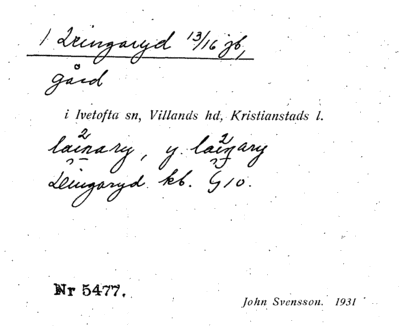 1 Leingaryd 13/16 jb,
gård
i Ivetofta sn, Villands hd, Kristianstads l.
y.
Leingaryd kb. G10.
Nr 5477.
John Svensson. 1931